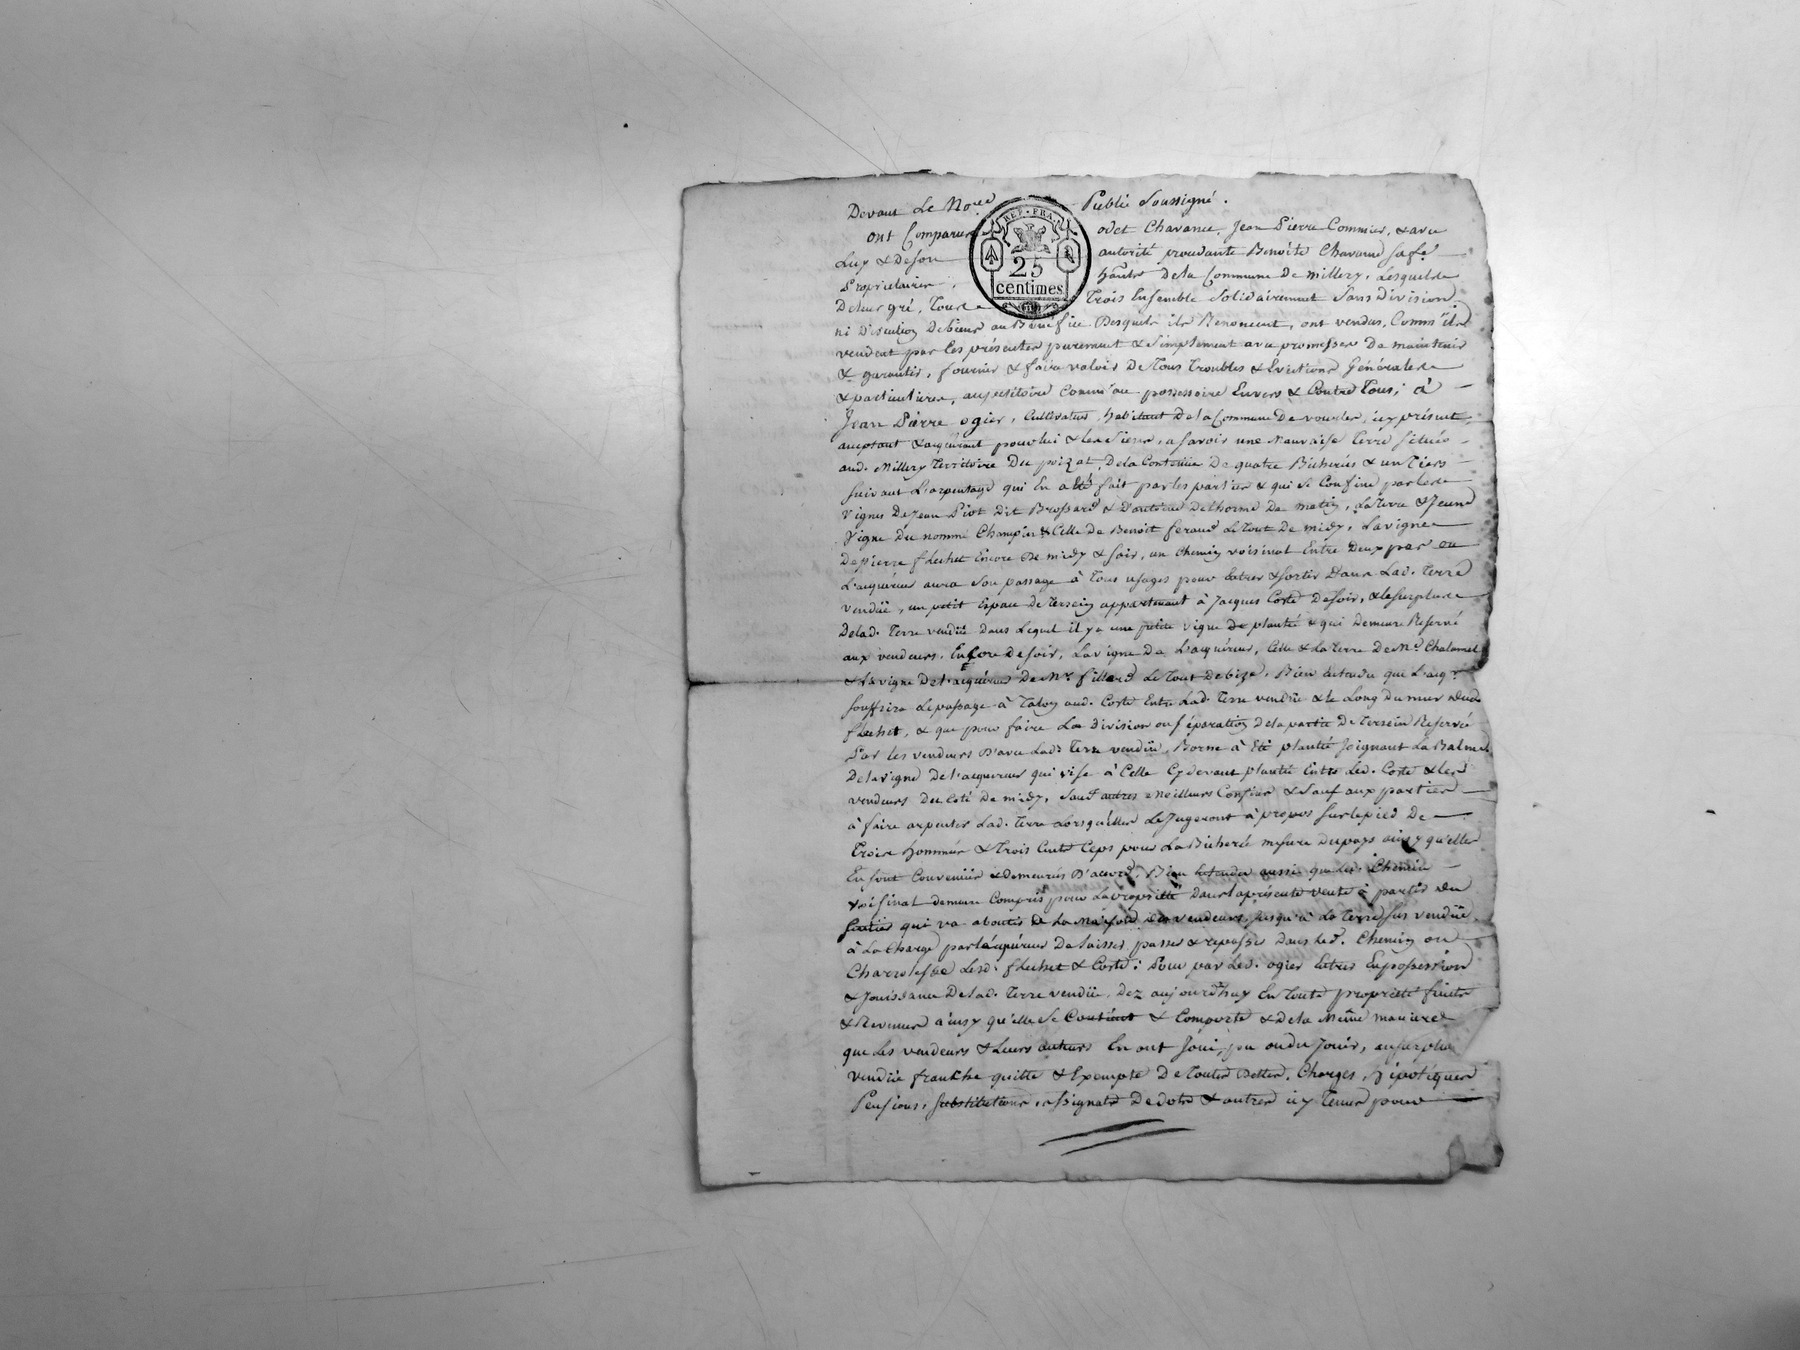 Devant Le No.re Public Soussigné.
REP. FRA.
25
centimes
ont Comparu odet Chavanne, Jean Pierre Commier, & avec
Luy & De son autorité procedante Benoite Chavanne sa fe.
Proprietaires, hânts De la Commune De Millery, Lesquels
De leur gré, Tous Trois Ensemble Solidairement Sans Division
ni Discution De biens au Bénéfice Desquels ils Renoncent, ont vendus, Comm'ils
vendent par Les présentes purement & simplement avec promesses De maintenir
& garantir, fournir & faire valoir De Tous Troubles & Evictions Générales
& particulieres, au petitoire Comm'au possessoire Envers & Contre Tous, à
Jean Pierre ogier, Cultivateur, habitant De la Commune De vourles, icy présent,
acceptant & acquérant pour lui & les siens, a savoir une Mauvaise Terre située
aud. Millery Territoire Du poizat, De la Contenue De quatre Bicherées & un Tiers
suivant L'arpentage qui En a été fait par les parties & qui se Confine par les
vignes De Jean Piot Dit Brossard & D'antoine Delhorme De matin, La Terre & Jeune
vigne Du nommé Champin & Celle De Benoit feraud Le Tout De midy, La vigne
De pierre flechet Encore De midy & soir, un chemin voisinal Entre Deux par ou
L'acquéreur aura son passage à Tous usages pour Entrer & sortir Dans Lad. Terre
vendüe, un petit Espace De Terrein appartenant à Jacques Corté De soir, & le surplus
De lad. Terre vendüe Dans Lequel il y a une petite vigne De plantée & qui Demeure Reservé
aux vendeurs, Encore De soir, La vigne De L'acquéreur, Celle & La Terre De Mr. Chalamel
& La vigne De L'acquéreur De Mr. fillard Le Tout De bize, Bien Entendu que L'acqr.
souffrira Le passage à Talon aud. Corté Entre Lad. Terre vendüe & le Long Du mur Dud.
flechet, & que pour faire La Division ou séparation De la partie De Terrein Reservé
Par les vendeurs D'avec Lad. Terre vendüe, Borne à Eté plantée Joignant La Balme
De la vigne De L'acquereur qui vise à Celle Cydevant plantée Entre Led. Corté & les
vendeurs Du Coté De midy, Sauf autres meilleurs Confins & sauf aux parties
à faire arpenter Lad. Terre Lorsqu'elles Le Jugeront à propos sur le pied De
Trois hommées & Trois Cents Ceps pour La Bicherée mesure Du pays ainsy qu'elles
En sont Convenües & Demeurés D'accord, Bien Entendu aussi que Led. Chemin
voisinal demeure Compris pour La propriété Dans La présente vente à partir Du
sentier qui va aboutir De La Maison Des vendeurs, Jusqu'à La Terre sus vendüe,
à La Charge par L'acquéreur De laisser passer & repasser Dans Led. Chemin ou
Lesd. flechet & Corté; Pour par Led. ogier Entrer En possession
& Jouissance De lad. Terre vendüe, Dez aujourd'huy En Toute propriété fruits
& Revenus ainsy qu'elle se Contient & Comporte & De la Même maniere
que Les vendeurs & Leurs auteurs En ont Joui, pu ou du Jouir, au surplus
vendüe franche quitte & Exempte De Toutes Dettes, Charges, hÿpotéques
Pensions, Substitutions, assignats De dots & autres icy Tenus pour